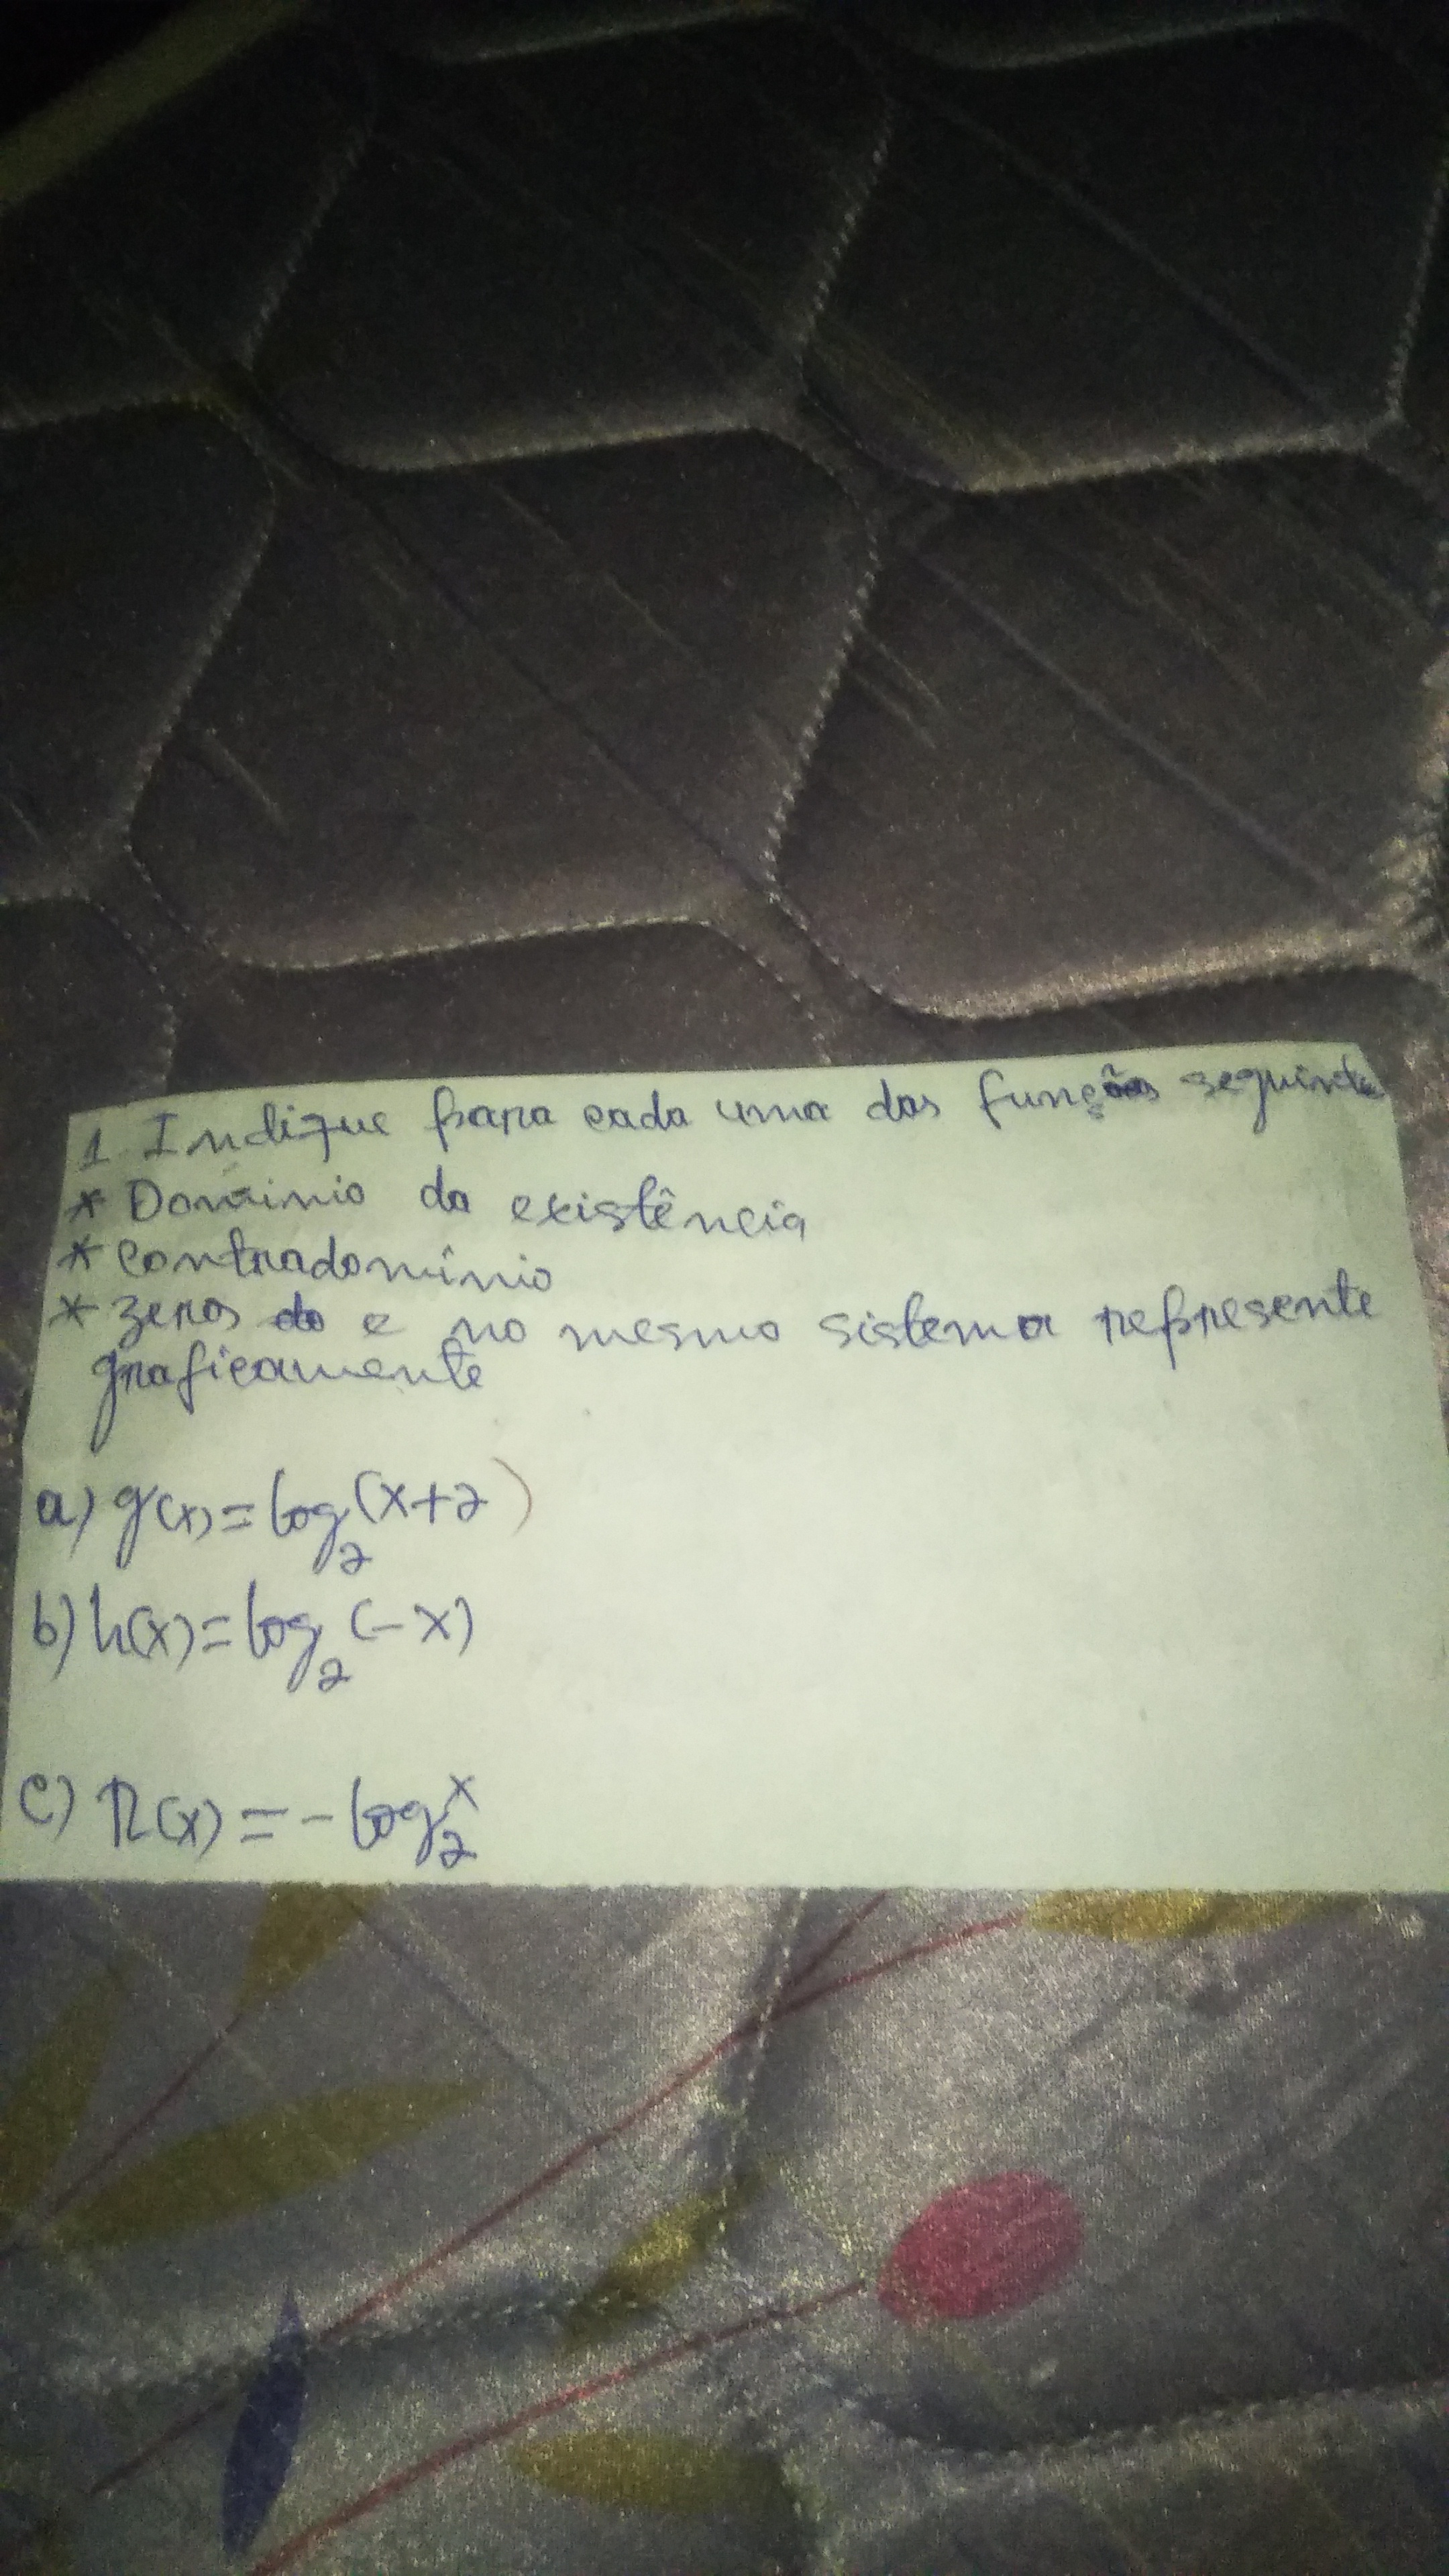 1. Indique para cada uma das funções seguinte
* Dominio da existência
* contradomínio
* zeros do e no mesmo sistema represente
graficamente
a) g(x) = log₂(x+2)
b) h(x) = log₂(-x)
c) r(x) = -log₂ˣ